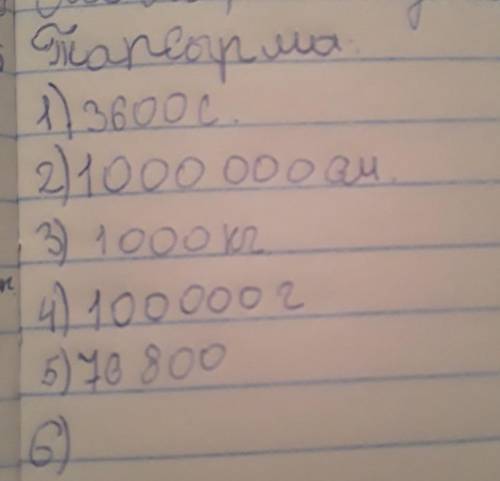 Тапсырма.
1) 3600 с.
2) 1000 000 см.
3) 1000 кг
4) 100000 г
5) 78 800
6)